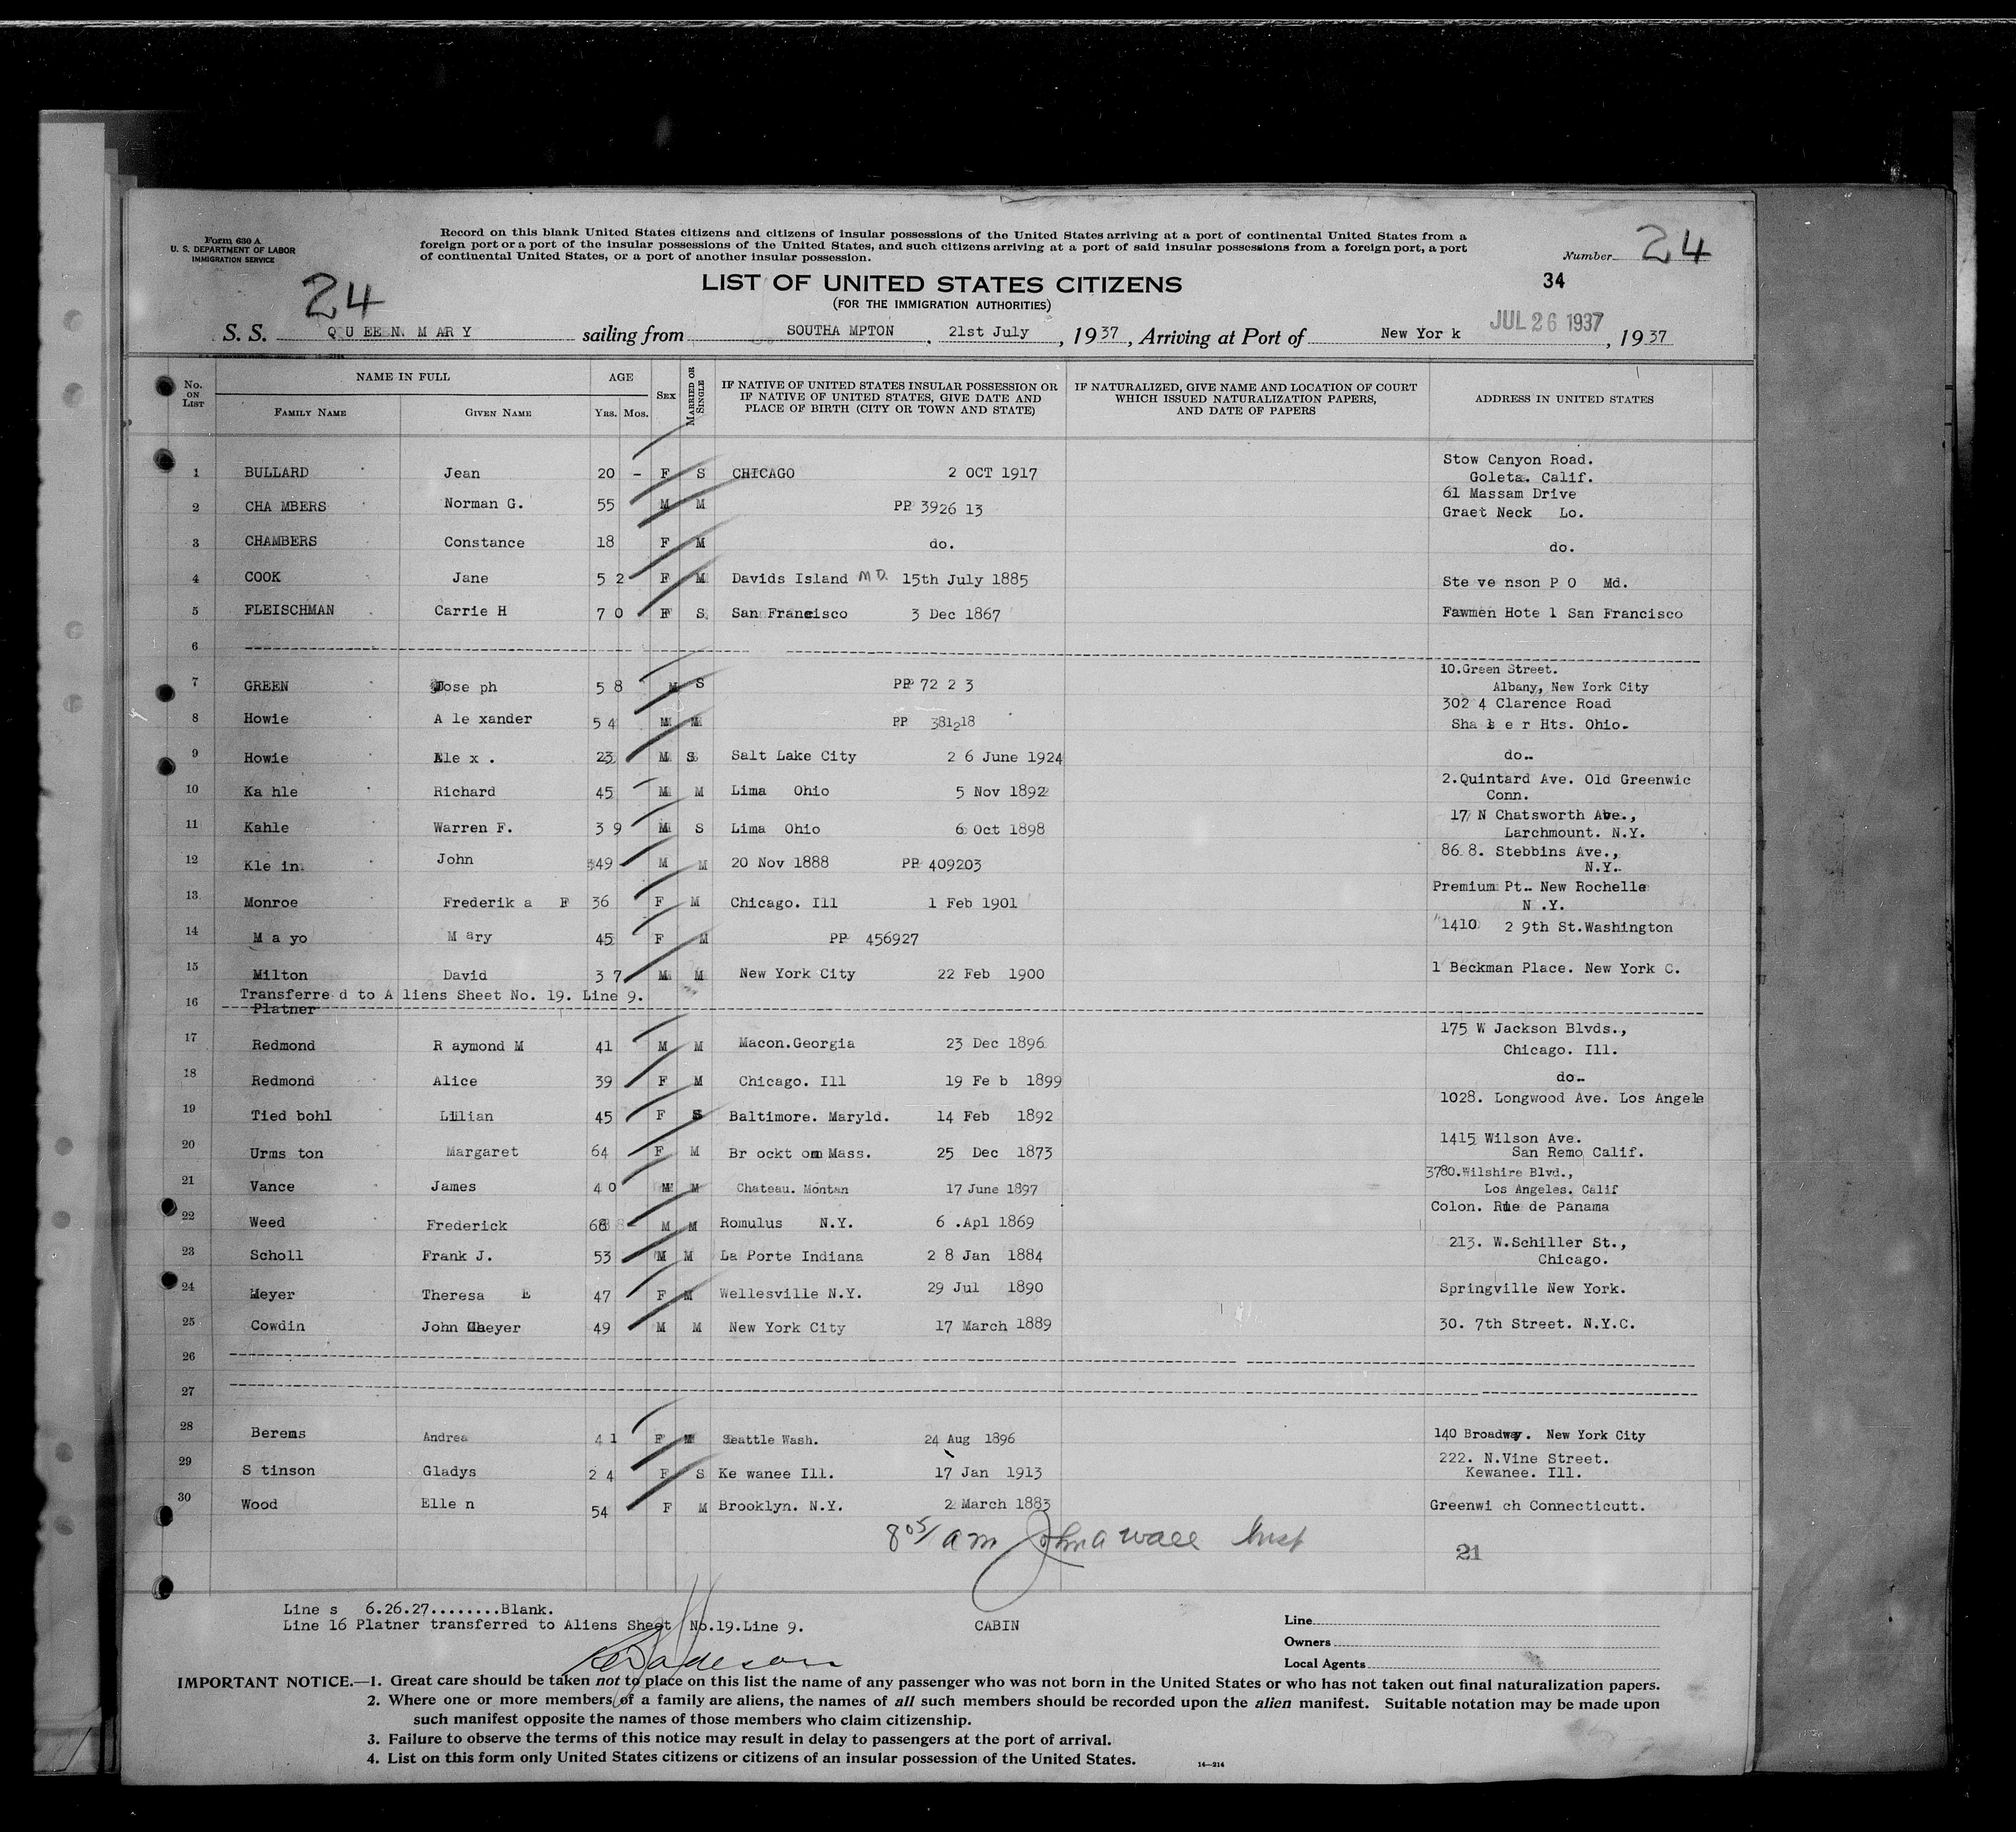 Form 630 A
U. S. DEPARTMENT OF LABOR
IMMIGRATION SERVICE
Record on this blank United States citizens and citizens of insular possessions of the United States arriving at a port of continental United States from a
foreign port or a port of the insular possessions of the United States, and such citizens arriving at a port of said insular possessions from a foreign port, a port
of continental United States, or a port of another insular possession.
Number 24
34
24
LIST OF UNITED STATES CITIZENS
(FOR THE IMMIGRATION AUTHORITIES)
S. S. QUEEN MARY sailing from SOUTHAMPTON, 21st July, 1937, Arriving at Port of New York JUL 26 1937, 1937
No. ON LIST
NAME IN FULL
FAMILY NAME
GIVEN NAME
AGE
YRS. MOS.
SEX
MARRIED OR SINGLE
IF NATIVE OF UNITED STATES INSULAR POSSESSION OR
IF NATIVE OF UNITED STATES, GIVE DATE AND
PLACE OF BIRTH (CITY OR TOWN AND STATE)
IF NATURALIZED, GIVE NAME AND LOCATION OF COURT
WHICH ISSUED NATURALIZATION PAPERS,
AND DATE OF PAPERS
ADDRESS IN UNITED STATES
1 BULLARD Jean 20 - F S CHICAGO 2 OCT 1917 Stow Canyon Road.
Goleta. Calif.
2 CHAMBERS Norman G. 55 M M PP 392613 61 Massam Drive
Graet Neck Lo.
3 CHAMBERS Constance 18 F M do. do.
4 COOK Jane 52 F M Davids Island MD. 15th July 1885 Stevenson P O Md.
5 FLEISCHMAN Carrie H 70 F S San Francisco 3 Dec 1867 Fawmen Hotel San Francisco
6
7 GREEN Joseph 58 M S PP 7223 10.Green Street.
Albany, New York City
8 Howie Alexander 54 M M PP 381218 3024 Clarence Road
Sha er Hts. Ohio.
9 Howie Alex. 23 M S Salt Lake City 26 June 1924 do..
10 Kahle Richard 45 M M Lima Ohio 5 Nov 1892 2.Quintard Ave. Old Greenwic
Conn.
11 Kahle Warren F. 39 M S Lima Ohio 6 Oct 1898 17 N Chatsworth Ave.,
Larchmount. N.Y.
12 Klein John 49 M M 20 Nov 1888 PP 409203 868. Stebbins Ave.,
N.Y.
13 Monroe Frederika F 36 F M Chicago. Ill 1 Feb 1901 Premium Pt. New Rochelle
N.Y.
14 Mayo Mary 45 F M PP 456927 1410 29th St.Washington
15 Milton David 37 M M New York City 22 Feb 1900 1 Beckman Place. New York C.
16 Transferred to Aliens Sheet No. 19. Line 9.
Platner
17 Redmond Raymond M 41 M M Macon.Georgia 23 Dec 1896 175 W Jackson Blvds.,
Chicago. Ill.
18 Redmond Alice 39 F M Chicago. Ill 19 Feb 1899 do..
19 Tiedbohl Lilian 45 F S Baltimore. Maryld. 14 Feb 1892 1028. Longwood Ave. Los Angele
20 Urmston Margaret 64 F M Brockton Mass. 25 Dec 1873 1415 Wilson Ave.
San Remo Calif.
21 Vance James 40 M M Chateau. Montan 17 June 1897 3780.Wilshire Blvd.,
Los Angeles. Calif
22 Weed Frederick 68 M M Romulus N.Y. 6 .Apl 1869 Colon. Rue de Panama
23 Scholl Frank J. 53 M M La Porte Indiana 28 Jan 1884 213. W.Schiller St.,
Chicago.
24 Meyer Theresa E 47 F M Wellesville N.Y. 29 Jul 1890 Springville New York.
25 Cowdin John Cheyer 49 M M New York City 17 March 1889 30. 7th Street. N.Y.C.
26
27
28 Berems Andrea 41 F M Seattle Wash. 24 Aug 1896 140 Broadway. New York City
29 Stinson Gladys 24 F S Kewanee Ill. 17 Jan 1913 222. N.Vine Street.
Kewanee. Ill.
30 Wood Ellen 54 F M Brooklyn. N.Y. 2 March 1883 Greenwich Connecticutt.
8 05/am John A Wall Insp
21
Lines 6.26.27........Blank.
Line 16 Platner transferred to Aliens Sheet No.19.Line 9.
CABIN
Line
Owners
Local Agents
IMPORTANT NOTICE.—1. Great care should be taken not to place on this list the name of any passenger who was not born in the United States or who has not taken out final naturalization papers.
2. Where one or more members of a family are aliens, the names of all such members should be recorded upon the alien manifest. Suitable notation may be made upon
such manifest opposite the names of those members who claim citizenship.
3. Failure to observe the terms of this notice may result in delay to passengers at the port of arrival.
4. List on this form only United States citizens or citizens of an insular possession of the United States.
14—214